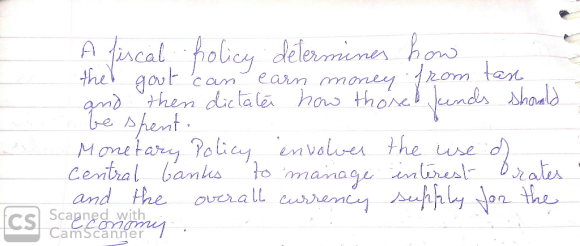 A fiscal policy determines how
the govt can earn money from tax
and then dictates how those funds should
be spent.
Monetary Policy envolves the use of
central banks to manage interest rates
and the overall currency supply for the
economy.
CS Scanned with
CamScanner